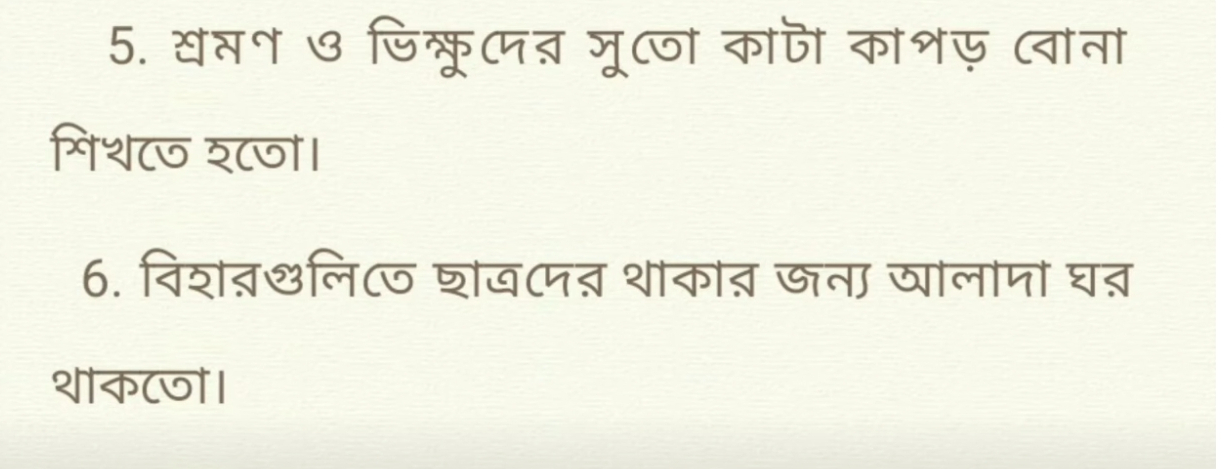 5. শ্রমণ ও ভিক্ষুদের সুতো কাটা কাপড় বোনা
শিখতে হতো।
6. বিহারগুলিতে ছাত্রদের থাকার জন্য আলাদা ঘর
থাকতো।